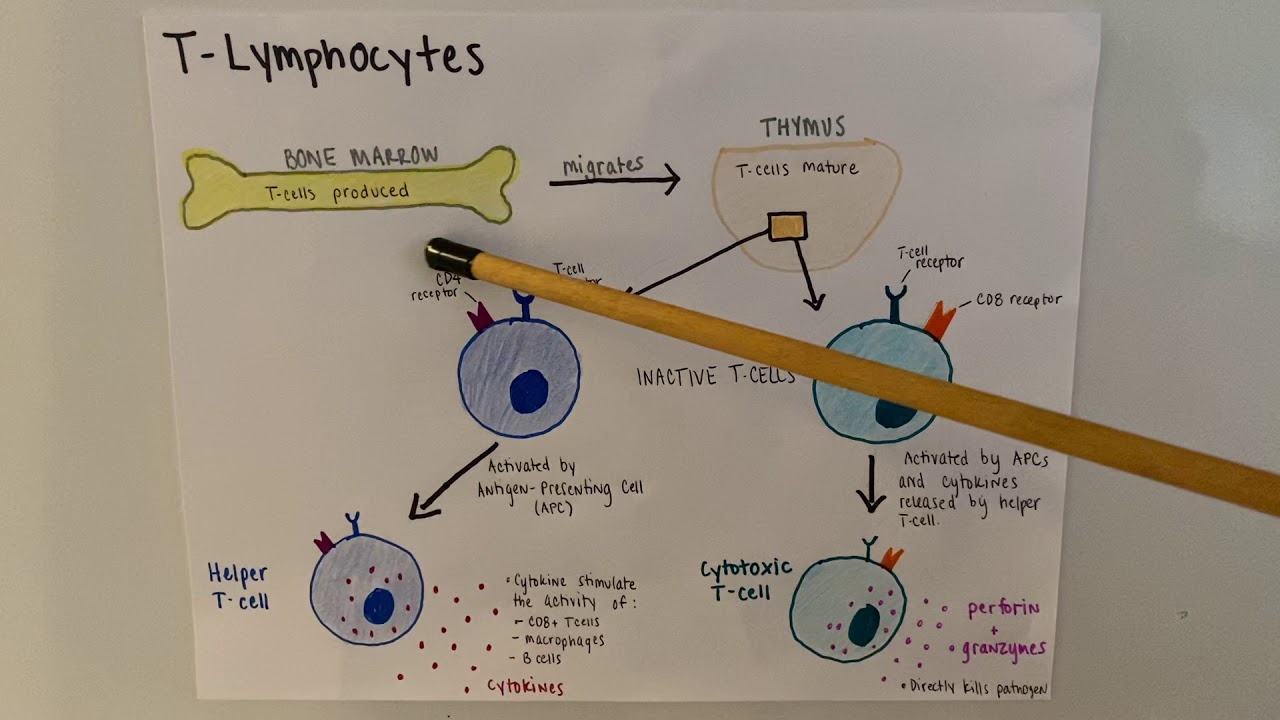 T-Lymphocytes
BONE MARROW
T-cells produced
migrates
THYMUS
T-cells mature
CD4
receptor
T-cell
T-cell
receptor
CD8 receptor
INACTIVE T-CELLS
Activated by
Antigen-Presenting Cell
(APC)
Activated by APCs
and cytokines
released by helper
T-cell.
Helper
T-cell
• Cytokine stimulate
the activity of:
- CD8+ Tcells
- macrophages
- B cells
cytokines
Cytotoxic
T-cell
perforin
+
granzymes
• Directly kills pathogen